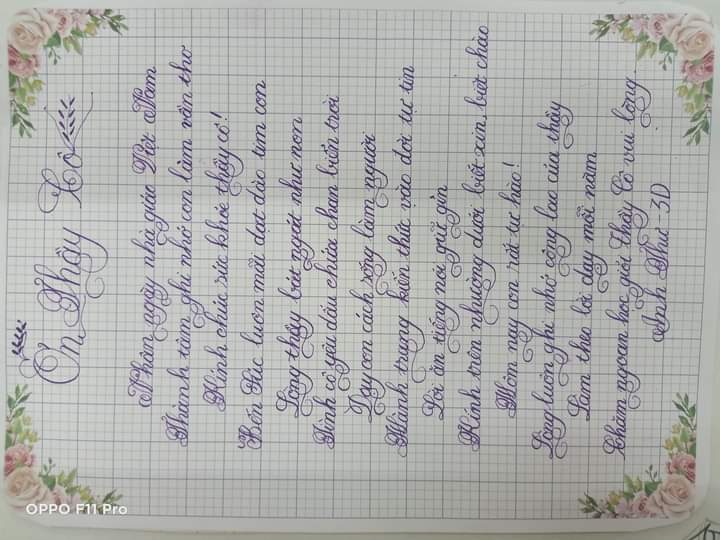 Ơn Thầy Cô
Nhân ngày nhà giáo Việt Nam
Thành tâm ghi nhớ con làm vần thơ
Kính chúc sức khỏe thầy cô!
Bến luôn mãi dạt dào tim con
Công thầy bát ngát như non
Tình cô yêu dấu chứa chan biển trời
Dạy con cách sống làm người
Hành trang kiến thức vào đời tự tin
Lời ăn tiếng nói giữ gìn
Kính trên nhường dưới biết xin, biết chào
Hôm nay con rất tự hào!
Lòng luôn ghi nhớ công lao của thầy
Làm theo lời dạy mỗi năm
Chăm ngoan học giỏi Thầy Cô vui lòng.
Anh Thư - 3D
OPPO F11 Pro